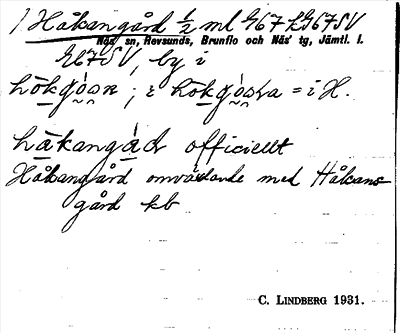 1 Håkangård 1/2 ml G67 LG67SV
Näs' sn, Revsunds, Brunflo och Näs' tg, Jämtl. l.
G67SV, by i
hōkgó̱sn ; i hōkgó̱sɴa = i H.
hākangād officiellt
Håkangård omväxlande med Håkans-
gård kb
C. LINDBERG 1931.